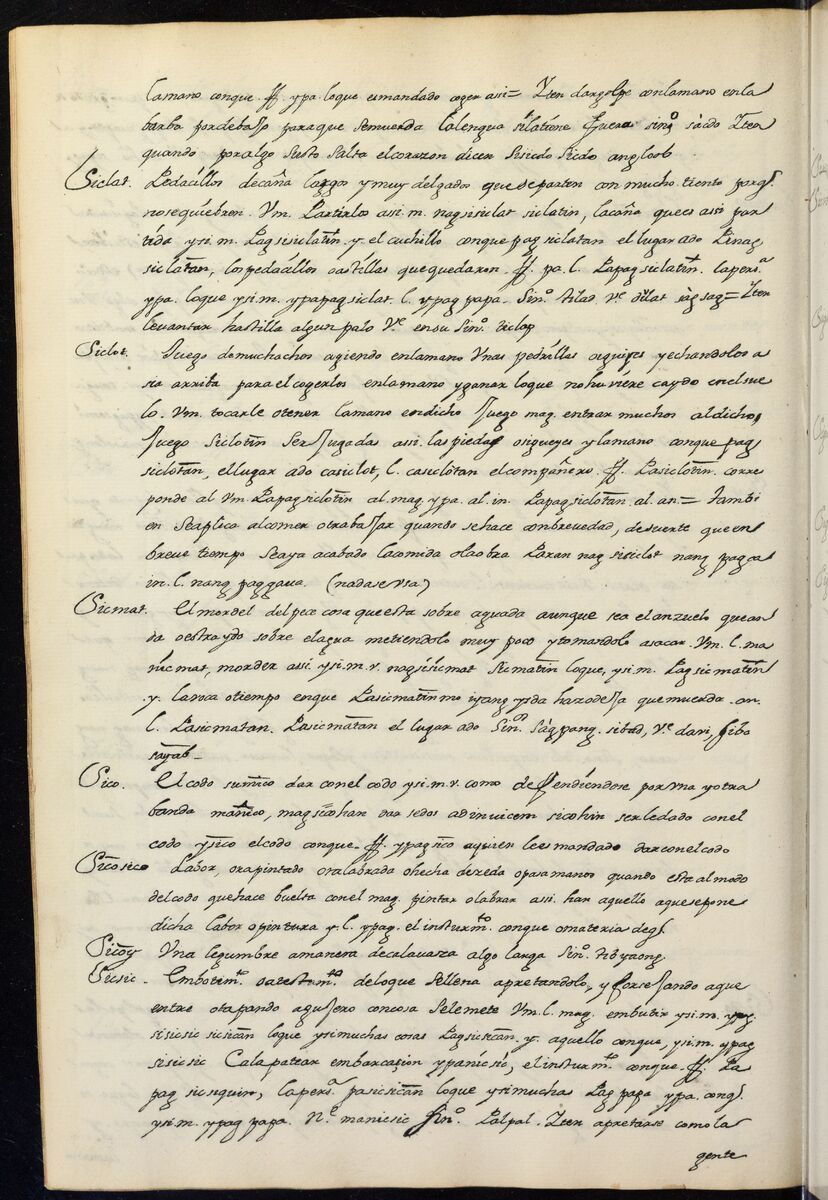 lamano conque. ff. ypa. loque esmandado coger assi= Yten dargolpe conlamano enla
barba pordebaxo paraque semuerda lalengua silatiene fuera sinº. sácdo Yten
quando poralgo susto salta elcorazon dicen sisicdo sicdo angloob
Siclat. Pedacillos decaña largos ymuy delgados queseparten con mucho tiento porq̃.
nosequiebren. Vm. Partirlos assi. m. nagsisiclat siclatin, lacaña quees assi par
tida ysi. m. Pagsisiclatin. y. el cuchillo conque pagsiclatan el lugar ado Pinag
siclatan, lospedacillos oastillas quequedaron. ff. pa. l. Papagsiclatin. lapersª
ypa. loque ysi. m. ypapagsiclat. l. ypagpapa. Sinº. silad vᵉ dilat sigsag= Yten
levantar hastilla algun palo Vᵉ ensu Sinº. siclap
Siclot. Juego demuchachos cogiendo enlamano Vnas pedrillas osigueyes yechandolos a
sia arriba para el cogerlos enlamano yganar loque nohuviere caydo enelsue
lo. Vm. tocarle otener lamano endicho Juego mag. entrar muchos aldicho
Juego siclotin ser Jugadas assi. las piedras osigueyes ylamano conque pag
siclotan, ellugar ado casiclot, l. casiclotan elcompañero. ff. Pasiclotin. corres
ponde al Vm. Papagsiclotin al. mag. ypa. al. in. Papagsiclotan. al. an= tambi
en seaplica alcomer otrabaxar quando sehace conbrevedad, desuerte queen
breve tiempo seaya acabado lacomida olaobra Paran nag sisiclot nang pagca
in. l. nang paggaua. (nadase vsa)
Sicmat. El morder delpece cosa queesta sobre aguada aunque sea elanzuelo quean
da oestraydo sobre elagua metiendolo muy poco ytomandolo asacar. Vm. l. ma
nicmat, morder assi ysi. m. v. nagsisicmat sicmatin loque, ysi. m. Pagsicmatin
y. laroca otiempo enque Pasicmatin mo iyang ysda hazodexa quemuerda. an.
l. Pasicmatan. Pasicmatan el lugar ado Sinº. Ságpang. sibad, Vᵉ dari, sibo
sayab.
Sico. El codo sumico dar conel codo ysi. m. v. como defendiendose poruna yotra
banda manico, magsicohan dar sedos adinuicem sicohin serledado conel
codo ysico elcodo conque. ff. ypagsico aquien leesmandado darconelcodo
Sicosico Labor, orapintado oralabrada ohecha deseda opasamanos quando esta almodo
delcodo quehace buelta conel mag. pintar olabrar assi. han aquello aquesepone
dicha labor opintura y. l. ypag. el instrumᵗᵒ. conque omateria deq̃.
Sicoy Vna legumbre amanera decalavaza algo larga Sinº. tibyaong.
Sicsic. Embotimᵗᵒ. oatestamᵗᵒ. deloque sellena apretandolo, y forsejando aque
entre otapando agujero concosa selemete Vm. l. mag. embutir ysi. m. ypag.
sisicsic sicsican loque ysimuchas cosas Pagsicsican. y. aquello conque, ysi. m. ypag
sisicsic Calapatear embarcasion ypanicsic, el instrumᵗᵒ. conque. ff. Pa
pag sicsiquin, lapersª. pasicsican loque ysimucha Pagpapa ypa. conq̃.
ysi. m. ypag papa. Nº. manicsic Sinº. Palpal. Yten apretarse comola
gente